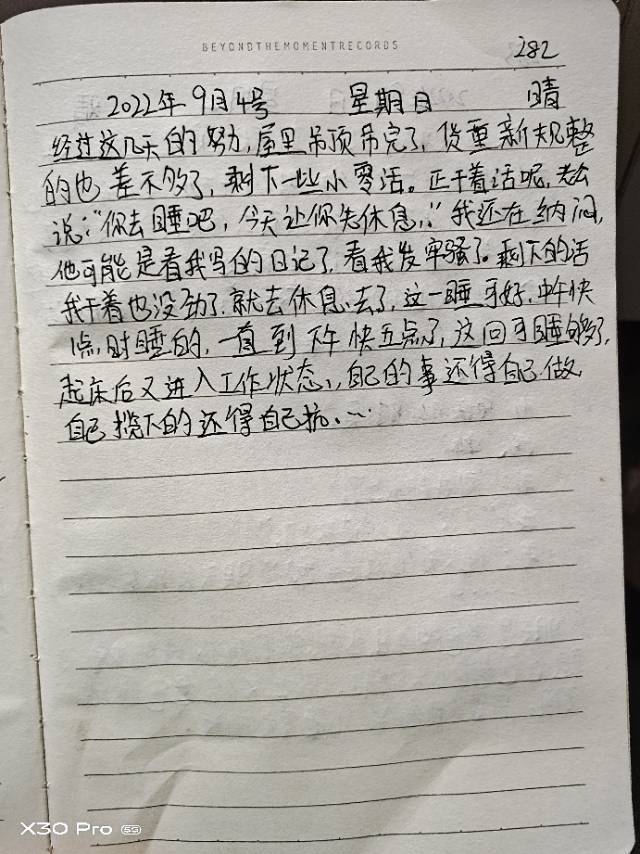 BEYONDTHEMOMENTRECORDS
282
2022年9月4号 星期日 晴
经过这几天的努力,屋里吊顶吊完了,货重新规整
的也差不多了,剩下一些小零活。正干着活呢,老公
说:“你去睡吧,今天让你先休息,”我还在纳闷,
他可能是看我写的日记了,看我发牢骚了。剩下的活
我干着也没劲了,就去休息去了,这一睡可好,中午快
1点时睡的,一直到下午快五点了,这回可睡够了,
起床后又进入工作状态,自己的事还得自己做,
自己揽下的还得自己抗、…
X30 Pro 5G